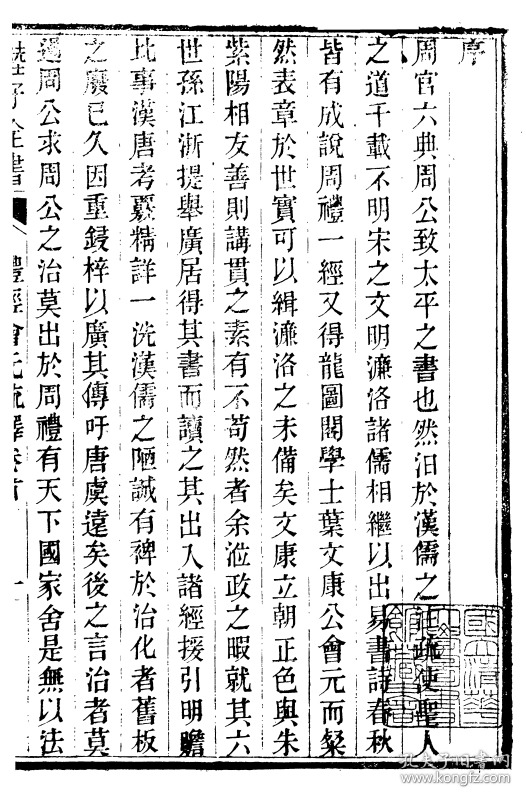 序
周官六典周公致太平之書也然汩於漢儒之註疏使聖人
之道千載不明宋之文明濂洛諸儒相繼以出易書詩春秋
皆有成說周禮一經又得龍圖閣學士葉文康公會元而粲
然表章於世實可以緝濂洛之未備矣文康立朝正色與朱
紫陽相友善則講貫之素有不苟然者余涖政之暇就其六
世孫江浙提舉廣居得其書而讀之其出入諸經援引明贍
比事漢唐考覈精詳一洗漢儒之陋誠有裨於治化者舊板
之廢已久因重鋟梓以廣其傳吁唐虞遠矣後之言治者莫
過周公求周公之治莫出於周禮有天下國家舍是無以法
禮經會元疏釋卷首 一
孔夫子旧书网
kongfz.com